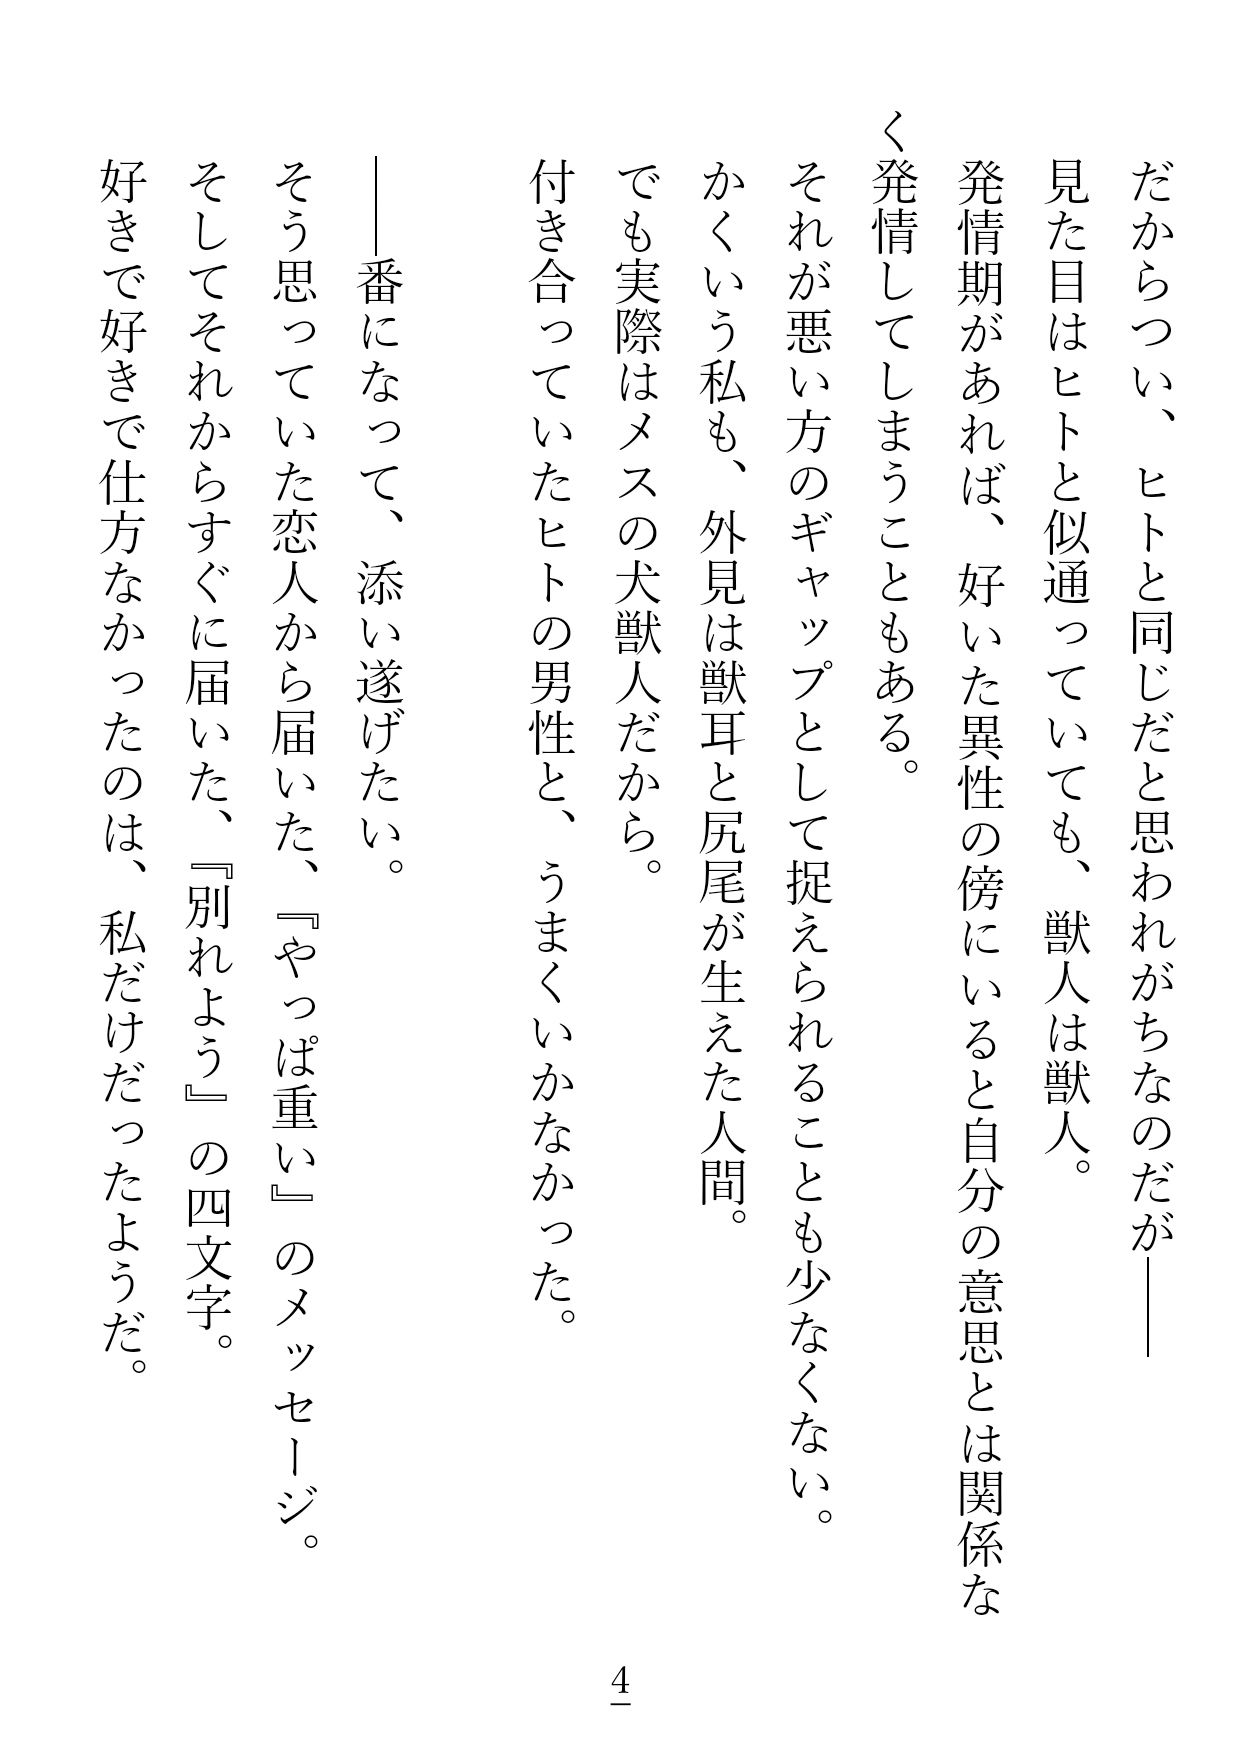 だからつい、ヒトと同じだと思われがちなのだが――
見た目はヒトと似通っていても、獣人は獣人。
発情期があれば、好いた異性の傍にいると自分の意思とは関係な
く発情してしまうこともある。
それが悪い方のギャップとして捉えられることも少なくない。
かくいう私も、外見は獣耳と尻尾が生えた人間。
でも実際はメスの犬獣人だから。
付き合っていたヒトの男性と、うまくいかなかった。
――番になって、添い遂げたい。
そう思っていた恋人から届いた、『やっぱ重い』のメッセージ。
そしてそれからすぐに届いた、『別れよう』の四文字。
好きで好きで仕方なかったのは、私だけだったようだ。
4